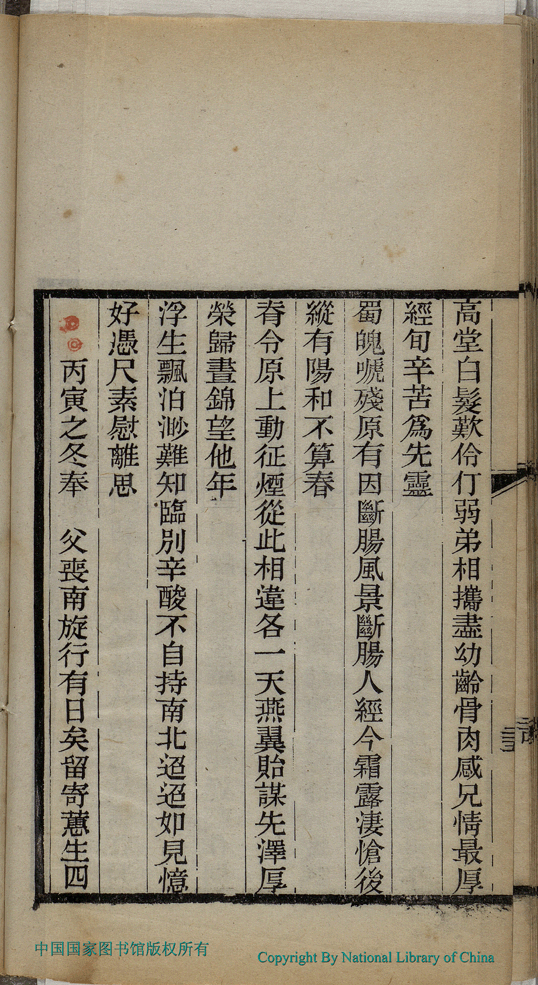 高堂白髮歎伶仃弱弟相攜盡幼齡骨肉感兄情最厚
經旬辛苦爲先靈
蜀魄嗁殘原有因斷腸風景斷腸人經今霜露淒愴後
縱有陽和不算春
脊令原上動征煙從此相違各一天燕翼貽謀先澤厚
榮歸晝錦望他年
浮生飄泊渺難知臨別辛酸不自持南北迢迢如見憶
好憑尺素慰離思
丙寅之冬奉　父喪南旋行有日矣留寄蕙生四
中国国家图书馆版权所有
Copyright By National Library of China